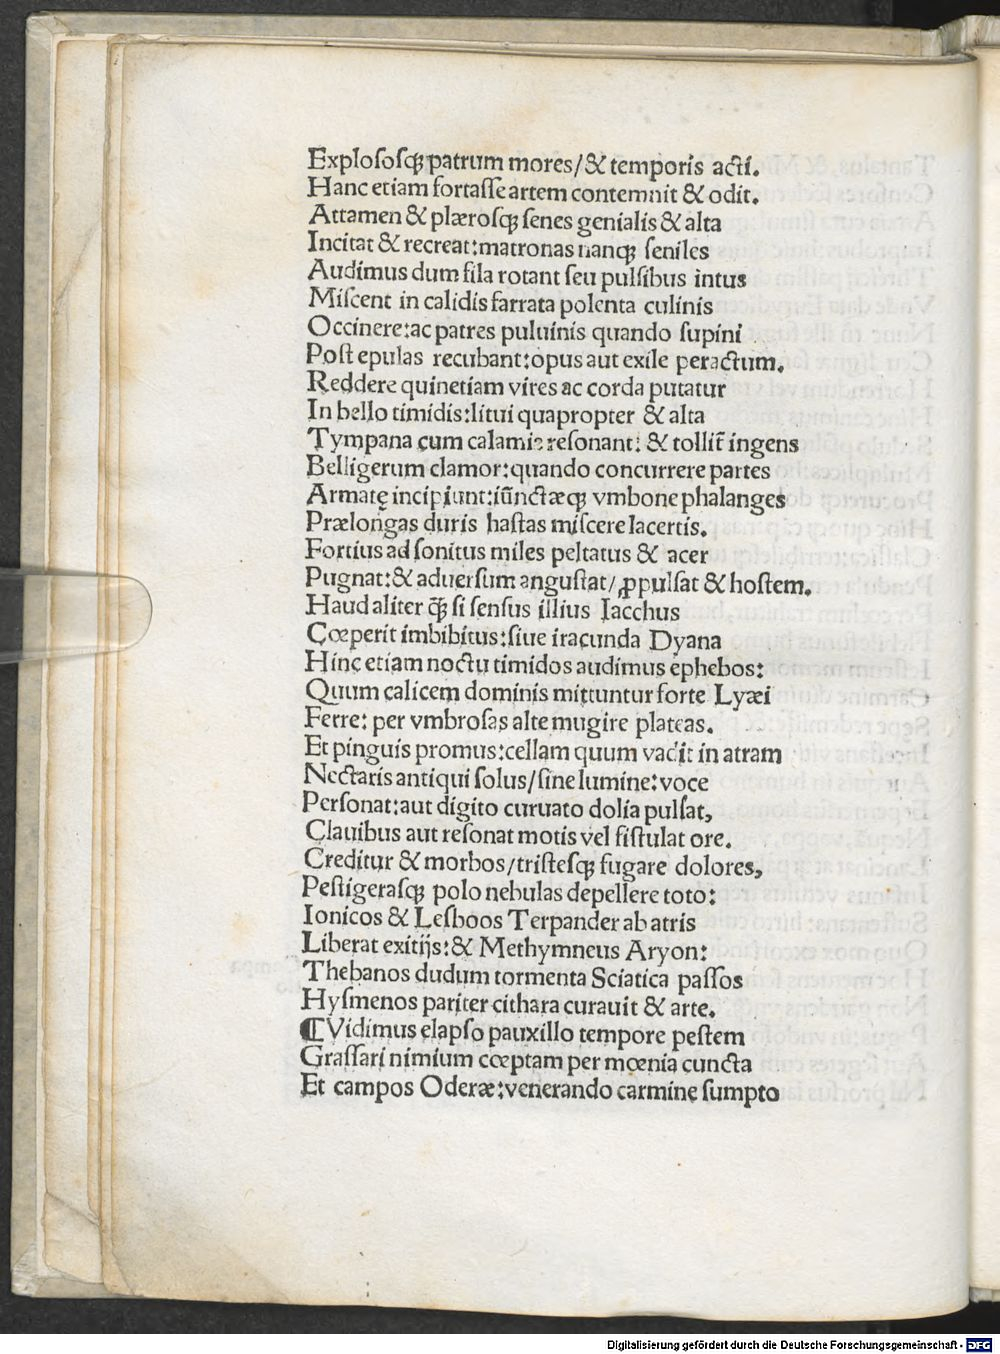 Exploſoſqꝫ patrum mores/& temporis acti.
Hanc etiam fortaſſe artem contemnit & odit.
Attamen & plæroſqꝫ ſenes genialis & alta
Incitat & recreat:matronas nanqꝫ ſeniles
Audimus dum fila rotant ſeu pulſibus intus
Miſcent in calidis farrata polenta culinis
Occinere:ac patres puluinis quando ſupini
Poſt epulas recubant:opus aut exile peractum.
Reddere quinetiam vires ac corda putatur
In bello timidis:litui quapropter & alta
Tympana cum calamis reſonant: & tollit̃ ingens
Belligerum clamor:quando concurrere partes
Armatę incipiunt:iũnctæqꝫ vmbone phalanges
Prælongas duris haſtas miſcere lacertis.
Fortius ad ſonitus miles peltatus & acer
Pugnat:& aduerſum anguſtat/ꝓpulſat & hoſtem.
Haud aliter qꝫ̃ ſi ſenſus illius Iacchus
Cœperit imbibitus:ſiue iracunda Dyana
Hinc etiam noctu timidos audimus ephebos:
Quum calicem dominis mittuntur forte Lyæi
Ferre: per vmbroſas alte mugire plateas.
Et pinguis promus:cellam quum vadit in atram
Nectaris antiqui ſolus/ſine lumine:voce
Perſonat:aut digito curuato dolia pulſat,
Clauibus aut reſonat motis vel fiſtulat ore.
Creditur & morbos/triſteſqꝫ fugare dolores,
Peſtigeraſqꝫ polo nebulas depellere toto:
Ionicos & Leſboos Terpander ab atris
Liberat exitijs:& Methymneus Aryon:
Thebanos dudum tormenta Sciatica paſſos
Hyſmenos pariter cithara curauit & arte.
¶Vidimus elapſo pauxillo tempore peſtem
Graſſari nimium cœptam per mœnia cuncta
Et campos Oderæ:venerando carmine ſumpto
Digitalisierung gefördert durch die Deutsche Forschungsgemeinschaft - DFG